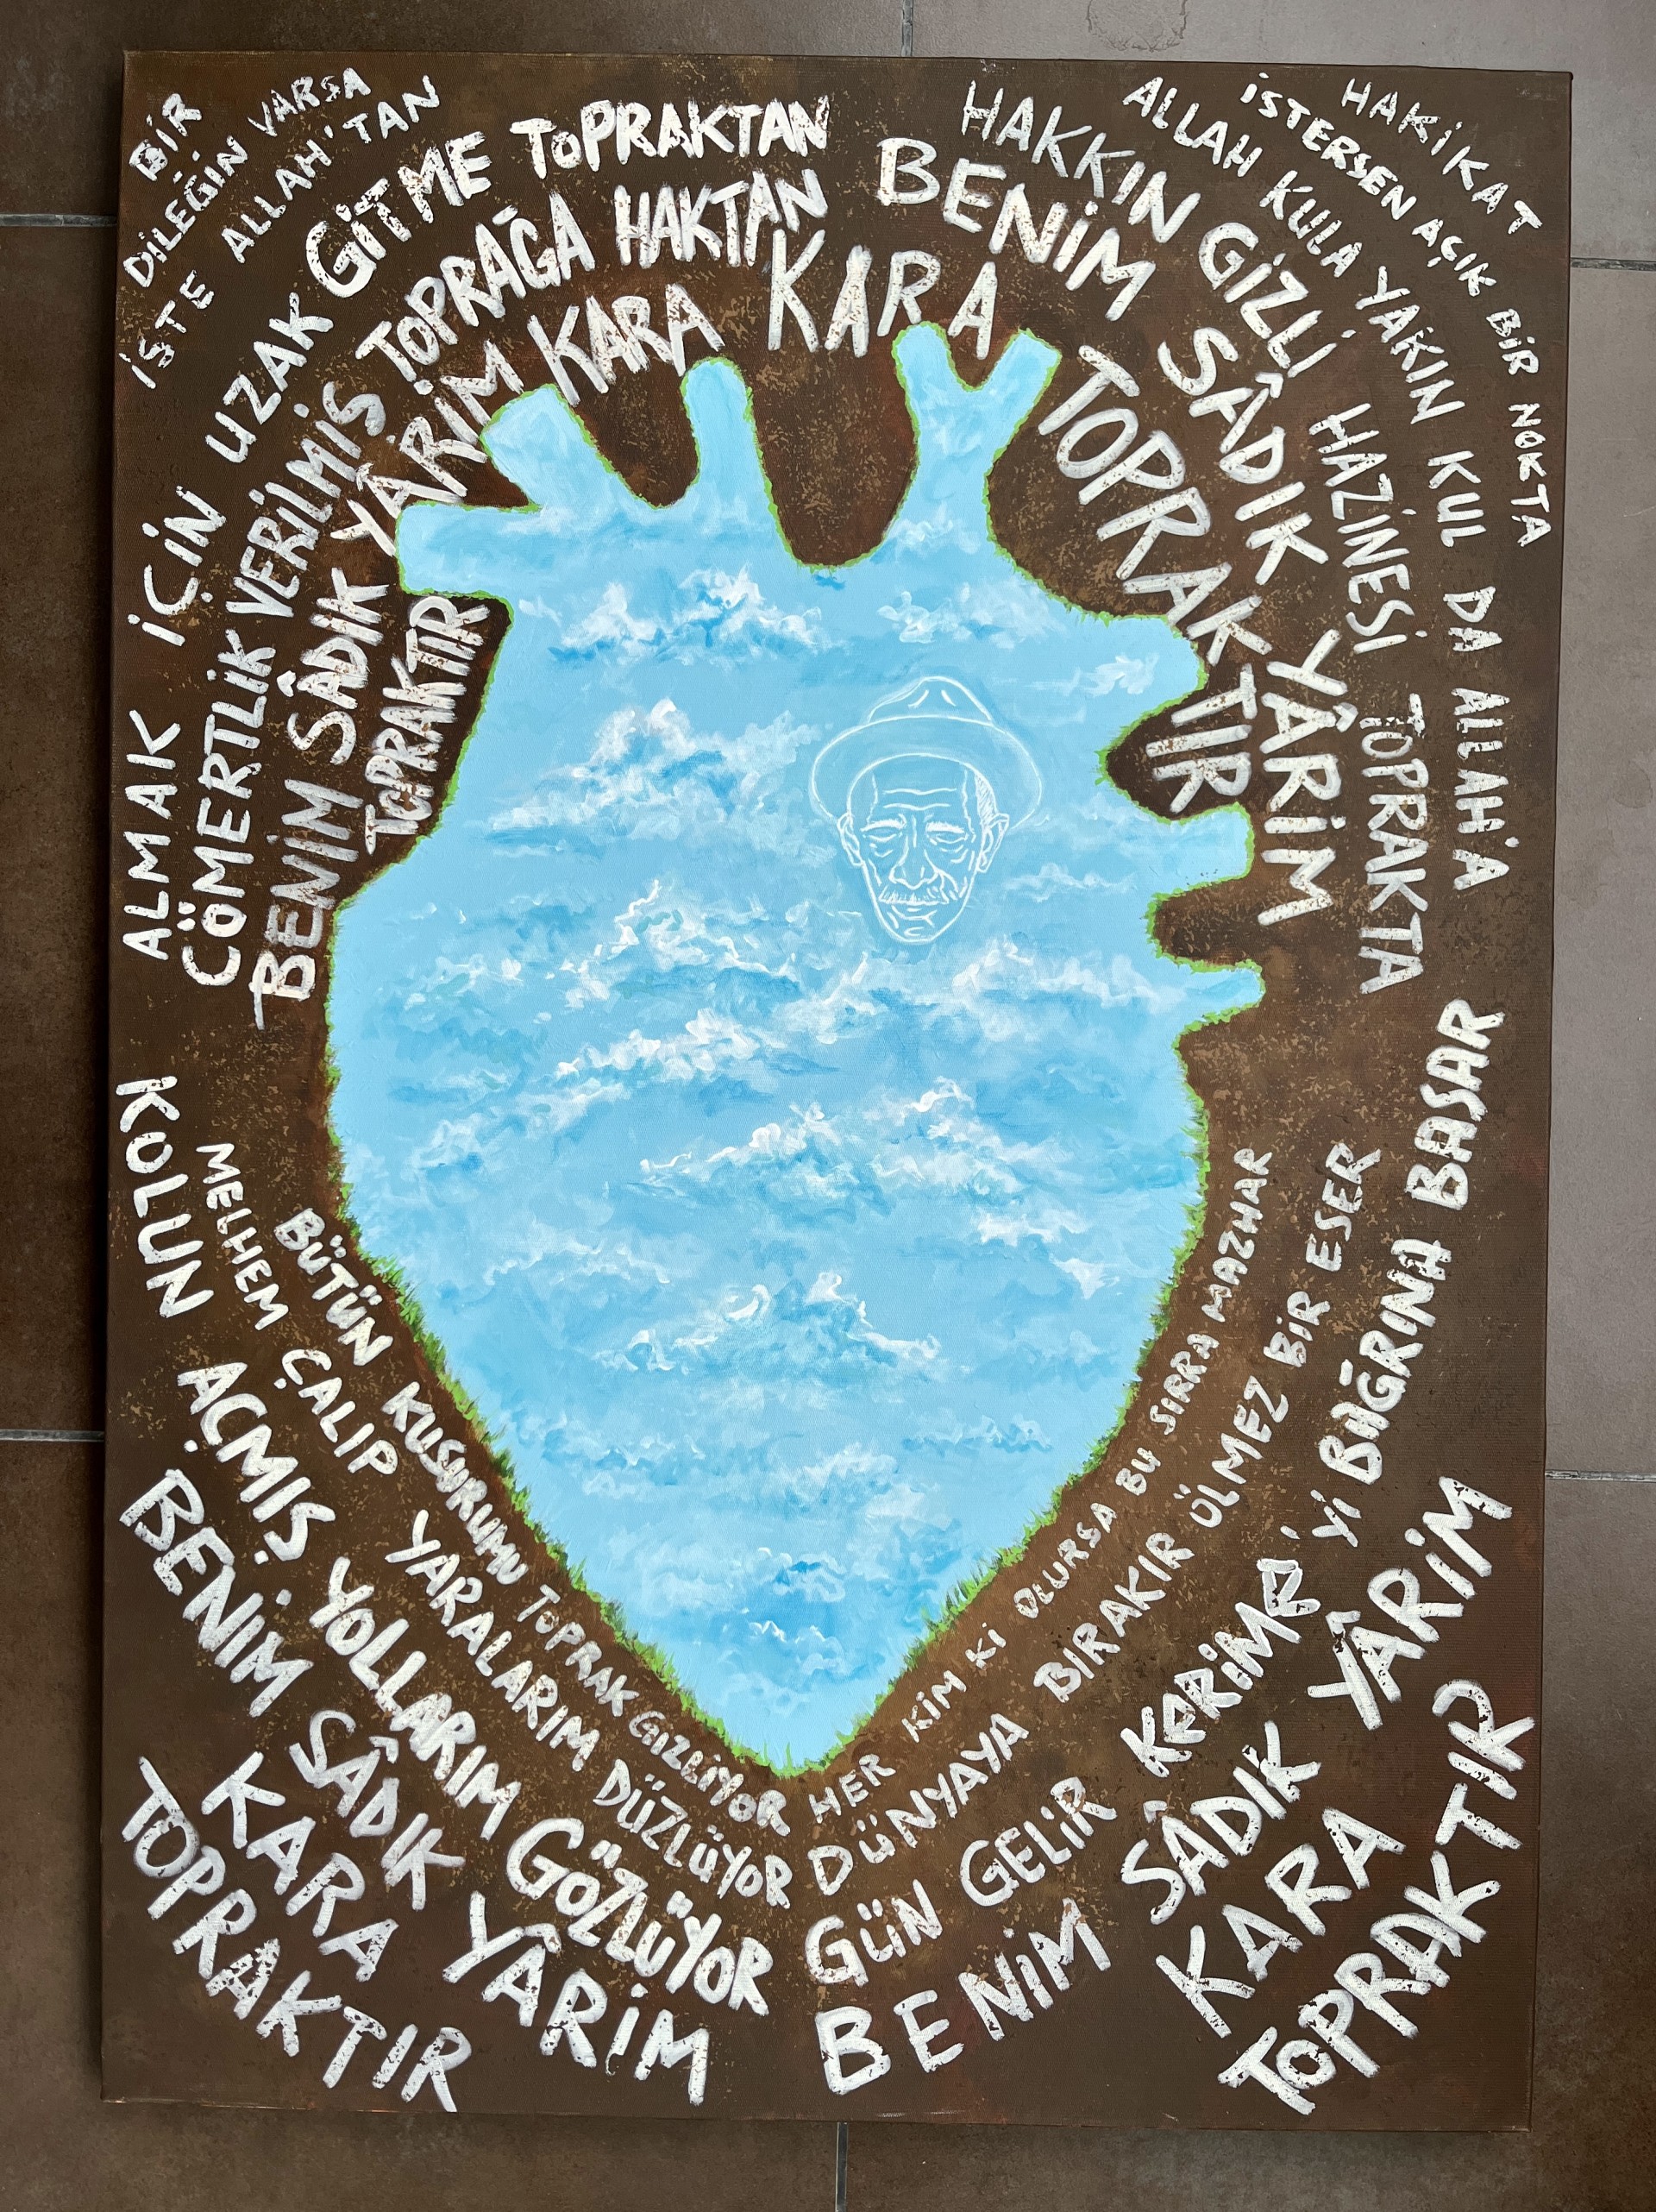 BİR
DİLEĞİN VARSA
İSTE ALLAH'TAN
ALMAK İÇİN UZAK GİTME TOPRAKTAN
CÖMERTLİK VERİLMİŞ TOPRAĞA HAKTAN
BENİM SÂDIK YÂRİM KARA
TOPRAKTIR
HAKİKAT
İSTERSEN AÇIK BİR NOKTA
ALLAH KULA YAKIN KUL DA ALLAH'A
HAKKIN GİZLİ HAZİNESİ TOPRAKTA
BENİM SÂDIK YÂRİM
KARA TOPRAKTIR
BÜTÜN KUSURUMU TOPRAK GİZLİYOR
MELHEM ÇALIP YARALARIM DÜZLÜYOR
KOLUN AÇMIŞ YOLLARIM GÖZLÜYOR
BENİM SÂDIK YÂRİM
KARA
TOPRAKTIR
HER KİM Kİ OLURSA BU SIRRA MAZHAR
DÜNYAYA BIRAKIR ÖLMEZ BİR ESER
GÜN GELİR KERİME'Yİ BAĞRINA BASAR
BENİM SÂDIK YÂRİM
KARA
TOPRAKTIR